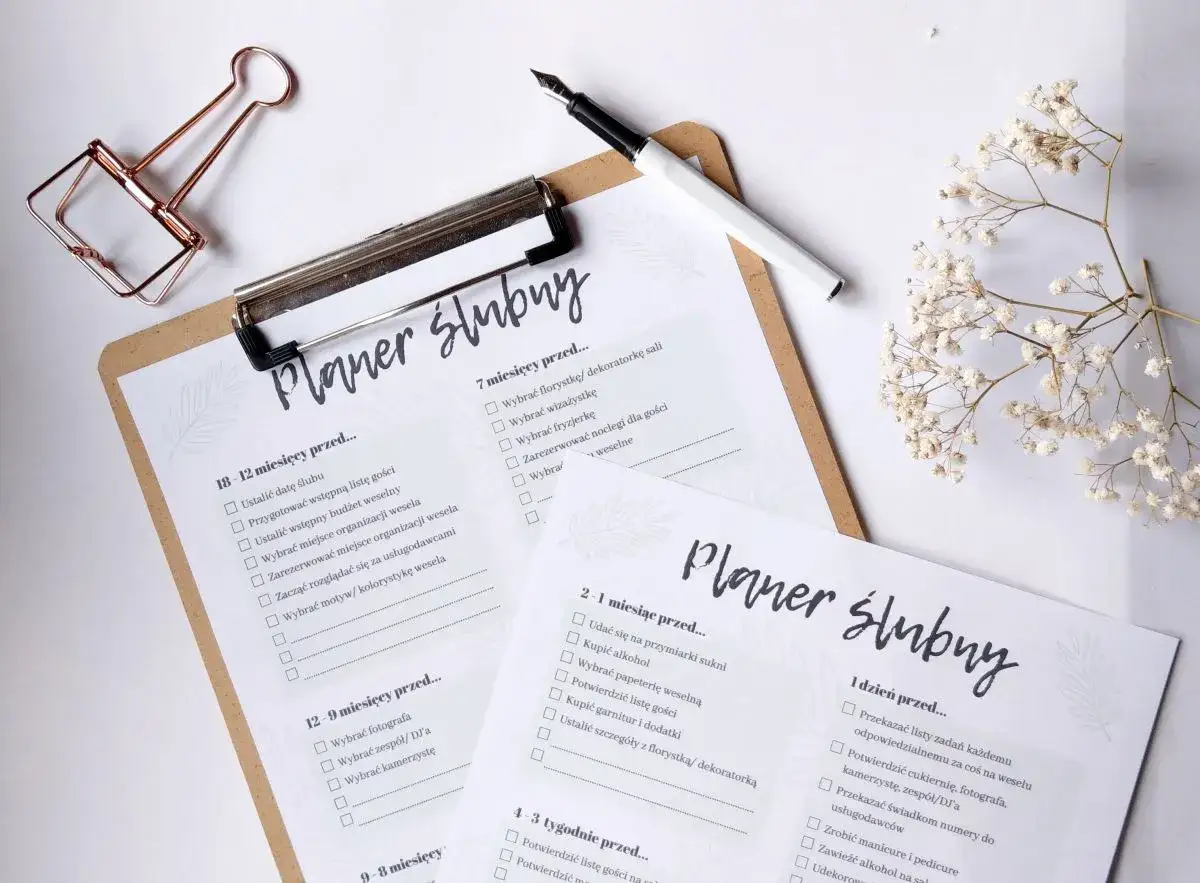 Planer ślubny
18 - 12 miesięcy przed...
Ustalić datę ślubu
Przygotować wstępną listę gości
Ustalić wstępny budżet weselny
Wybrać miejsce organizacji wesela
Zarezerwować miejsce organizacji wesela
Zacząć rozglądać się za usługodawcami
Wybrać motyw/ kolorystykę wesela
12 - 9 miesięcy przed...
Wybrać fotografa
Wybrać zespół/ DJ'a
Wybrać kamerzystę
9 - 8 miesięcy
7 miesięcy przed...
Wybrać florystkę/ dekoratorkę sali
Wybrać wizażystkę
Wybrać fryzjerkę
Zarezerwować noclegi dla gości
Wybrać weselne
Planer ślubny
2 - 1 miesiąc przed...
Udać się na przymiarki sukni
Kupić alkohol
Wybrać papeterię weselną
Potwierdzić listę gości
Kupić garnitur i dodatki
Ustalić szczegóły z florystką/ dekoratorką
4 - 3 tygodnie przed...
Potwierdzić listę gości na
Potwierdzić
1 dzień przed...
Przekazać listy zadań każdemu
odpowiedzialnemu za coś na weselu
Potwierdzić cukiernię, fotografa,
kamerzystę, zespół/DJ'a
Przekazać świadkom numery do
usługodawców
Zrobić manicure i pedicure
Zawieźć alkohol na